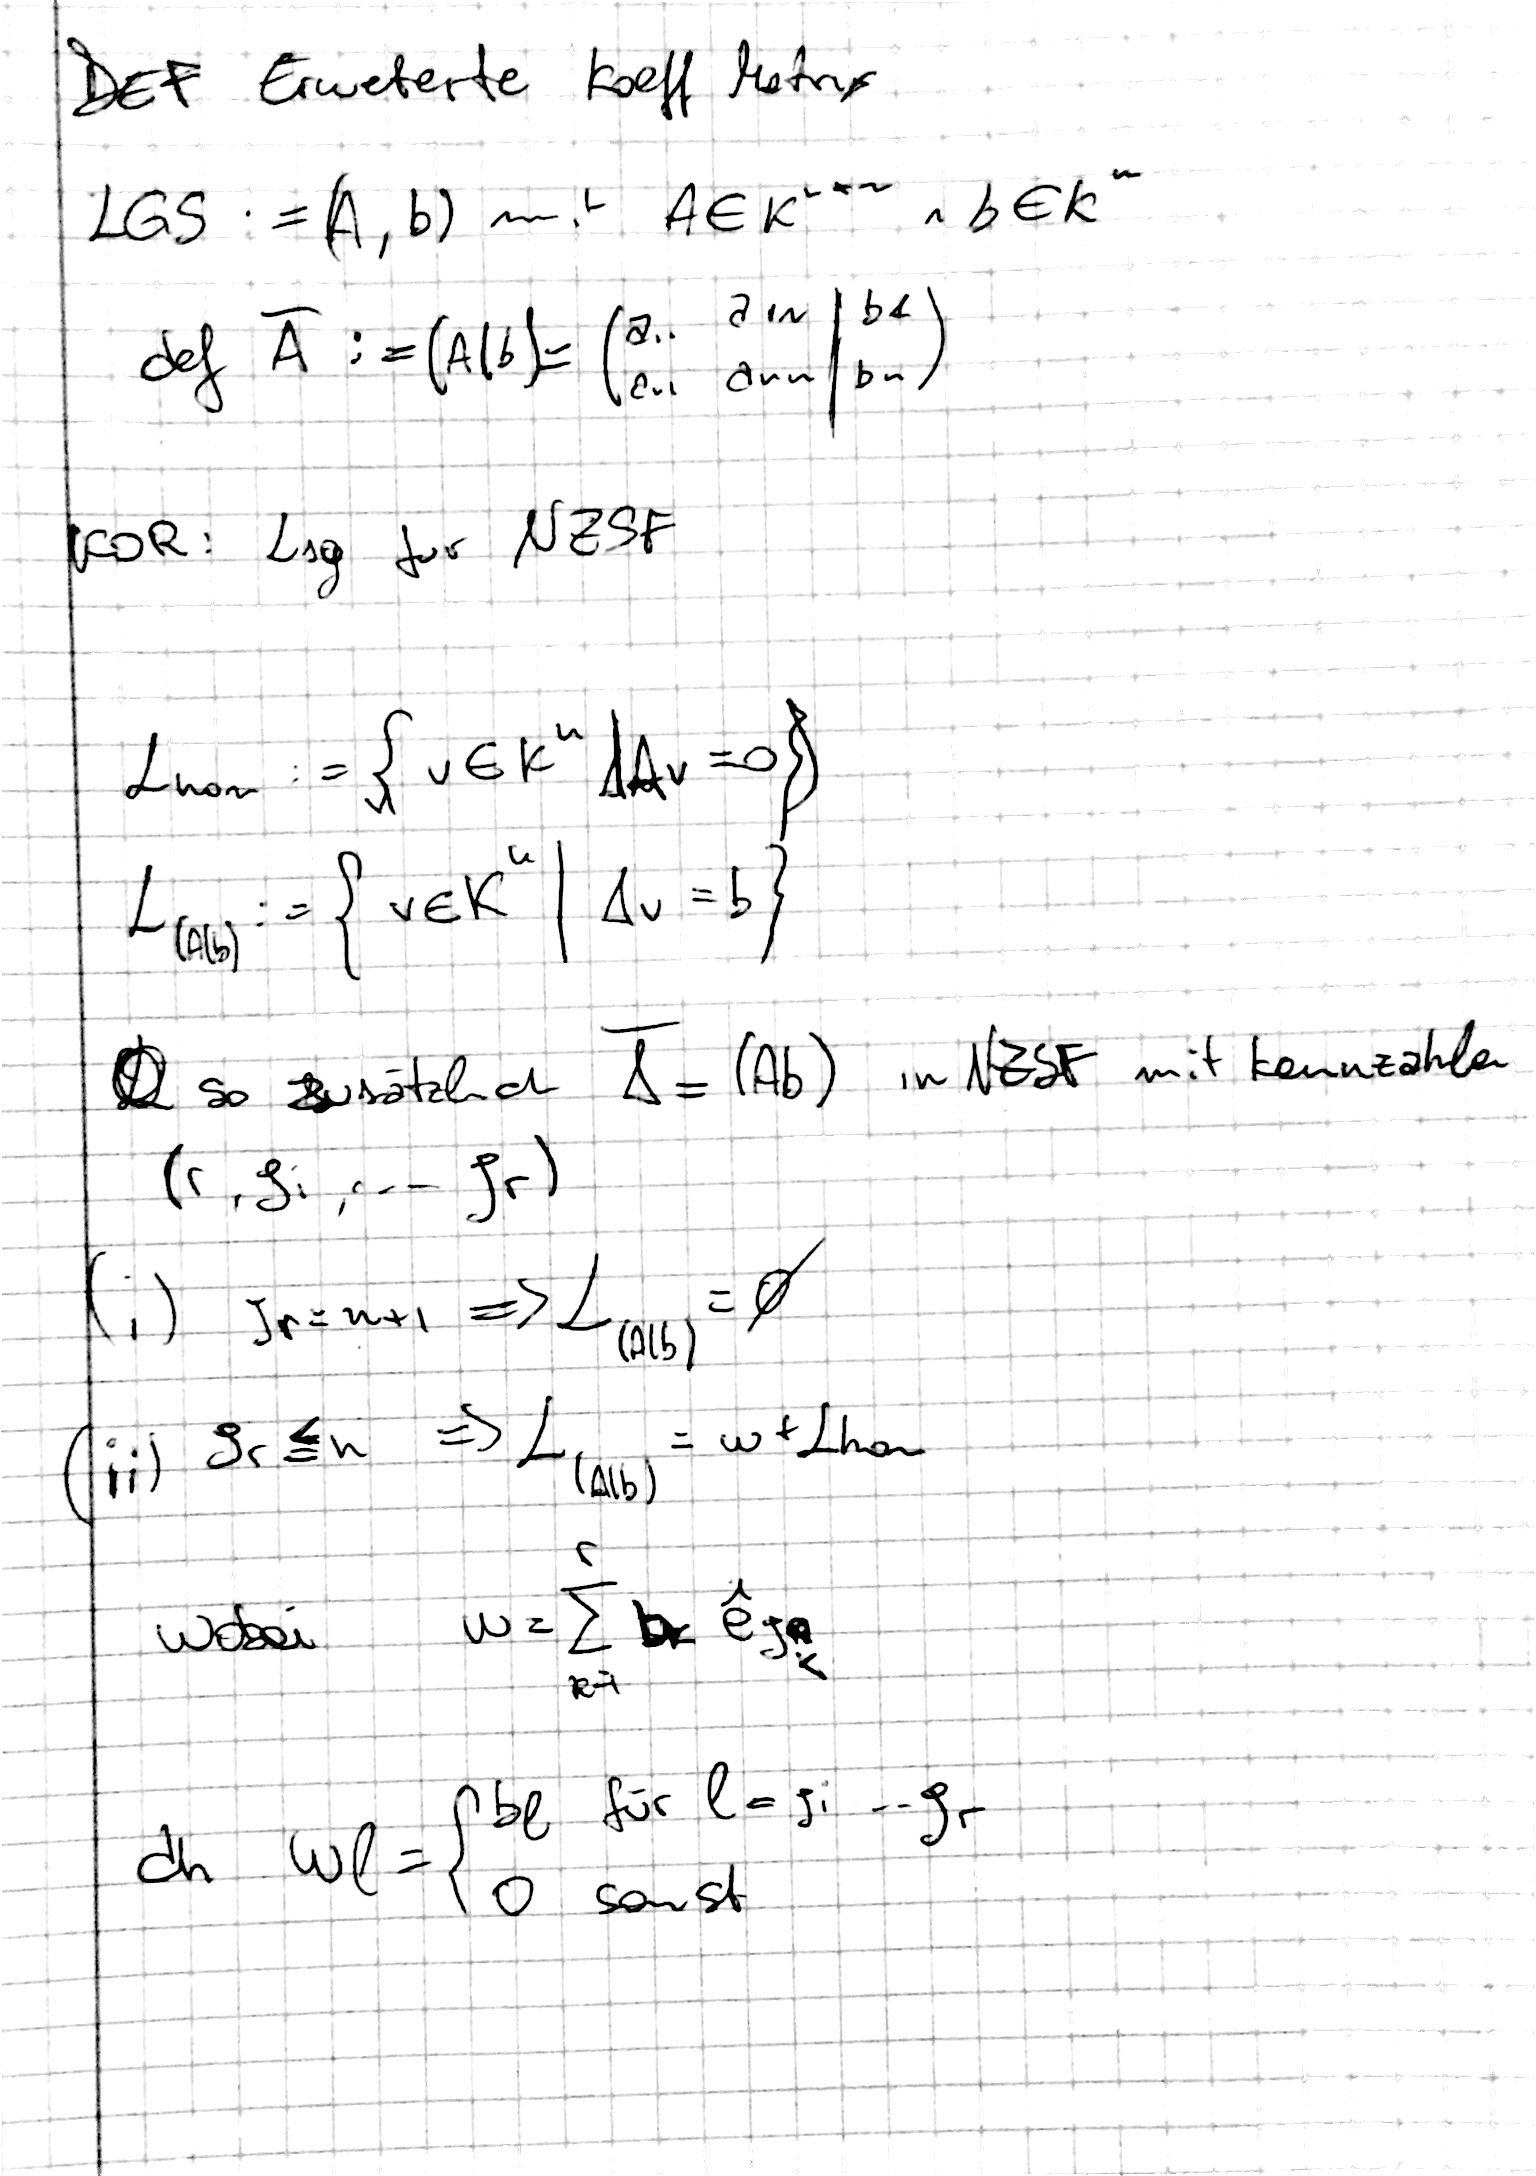 DEF Erweterte Koeff Matrix
LGS := (A, b) mit A∈K^(m×n) ∧ b∈K^n
def A̅ := (A|b) = (a₁₁ a₁ₙ | b₁
aₙ₁ aₙₙ | bₙ)
KOR: Lsg fur NZSF
L_hom := { v∈K^n | Av = 0 }
L_(A|b) := { v∈K^n | Av = b }
so zusätzlich A̅ = (Ab) in NZSF mit Kennzahlen
(r, j₁, ... jᵣ)
(i) jᵣ = n+1 => L_(A|b) = ∅
(ii) jᵣ ≤ n => L_(A|b) = w + L_hom
wobei w = ∑_(k=1)^r bₖ ê_jₖ
dh wℓ = { bℓ für ℓ = j₁ ... jᵣ
0 sonst